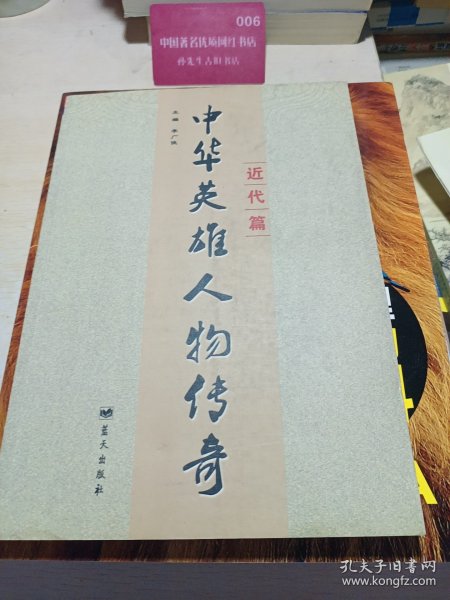 006
中国著名优项网红书店
孙先生古旧书店
中华英雄人物传奇
近代篇
主编
蓝天出版社
孔夫子旧书网
www.kongfz.com